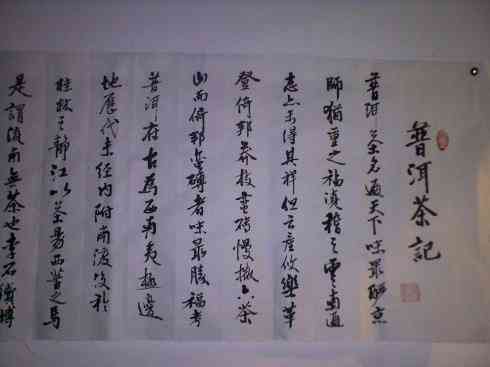 普洱茶記
普洱茶名遍天下味最釅京
師猶重之福滇稽之雲南通
志亦未得其祥但云產攸樂革
登倚邦莽枝蠻磚慢撒六茶
山而倚邦蠻磚者味最勝福考
普洱府古為西南夷極邊
地歷代未經內附南渡後於
桂林之靜江以茶易西蕃之馬
是謂滇南無茶也李石續博